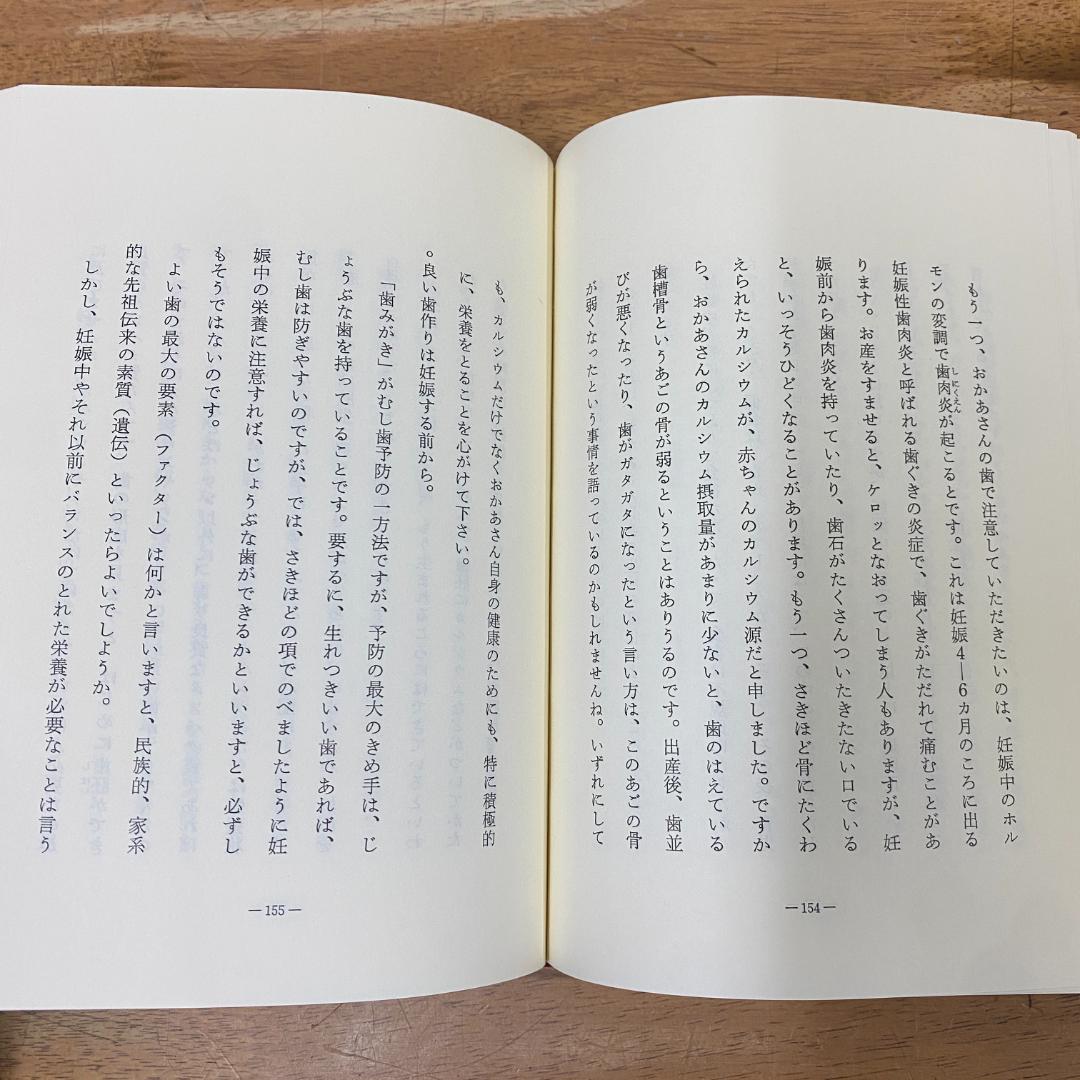 もう一つ、おかあさんの歯で注意していただきたいのは、妊娠中のホル
モンの変調で歯肉炎が起こるとです。これは妊娠4―6カ月のころに出る
しにくえん
妊娠性歯肉炎と呼ばれる歯ぐきの炎症で、歯ぐきがただれて痛むことがあ
ります。お産をすませると、ケロッとなおってしまう人もありますが、妊
娠前から歯肉炎を持っていたり、歯石がたくさんついたきたない口でいる
と、いっそうひどくなることがあります。もう一つ、さきほど骨にたくわ
えられたカルシウムが、赤ちゃんのカルシウム源だと申しました。ですか
ら、おかあさんのカルシウム摂取量があまりに少ないと、歯のはえている
歯槽骨というあごの骨が弱るということはありうるのです。出産後、歯並
びが悪くなったり、歯がガタガタになったという言い方は、このあごの骨
が弱くなったという事情を語っているのかもしれませんね。いずれにして
―154―
も、カルシウムだけでなくおかあさん自身の健康のためにも、特に積極的
に、栄養をとることを心がけて下さい。
。良い歯作りは妊娠する前から。
「歯みがき」がむし歯予防の一方法ですが、予防の最大のきめ手は、じ
ょうぶな歯を持っていることです。要するに、生れつきいい歯であれば、
むし歯は防ぎやすいのですが、では、さきほどの項でのべましたように妊
娠中の栄養に注意すれば、じょうぶな歯ができるかといいますと、必ずし
もそうではないのです。
よい歯の最大の要素（ファクター）は何かと言いますと、民族的、家系
的な先祖伝来の素質（遺伝）といったらよいでしようか。
しかし、妊娠中やそれ以前にバランスのとれた栄養が必要なことは言う
―155―